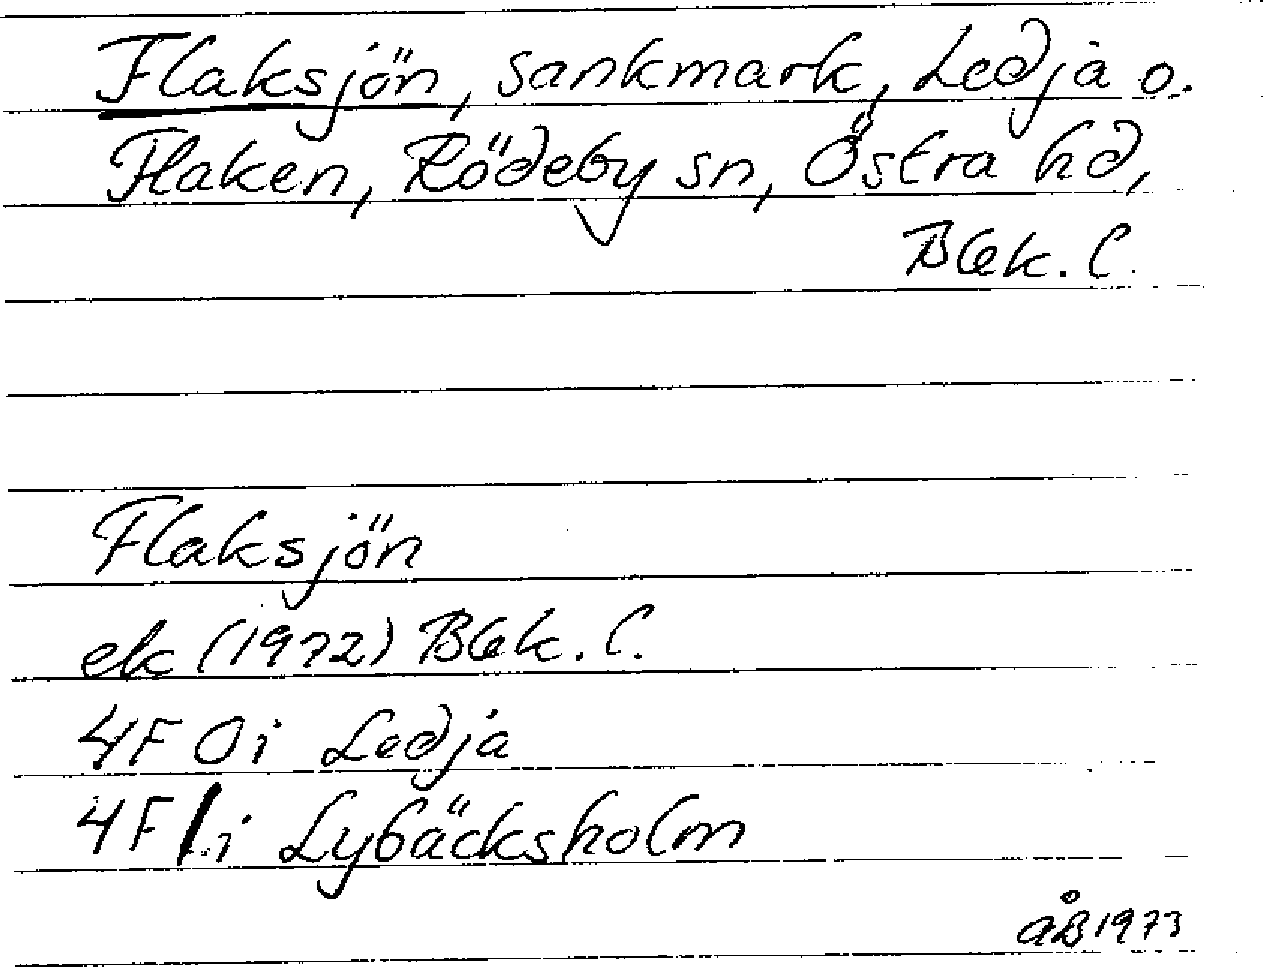 Flaksjön, sankmark, Ledja o.
Flaken, Rödeby sn, Östra hd,
Blek. l.
Flaksjön
ek (1972) Blek. l.
4F 0i Ledja
4F 1i Lybäcksholm
ÅB 1973